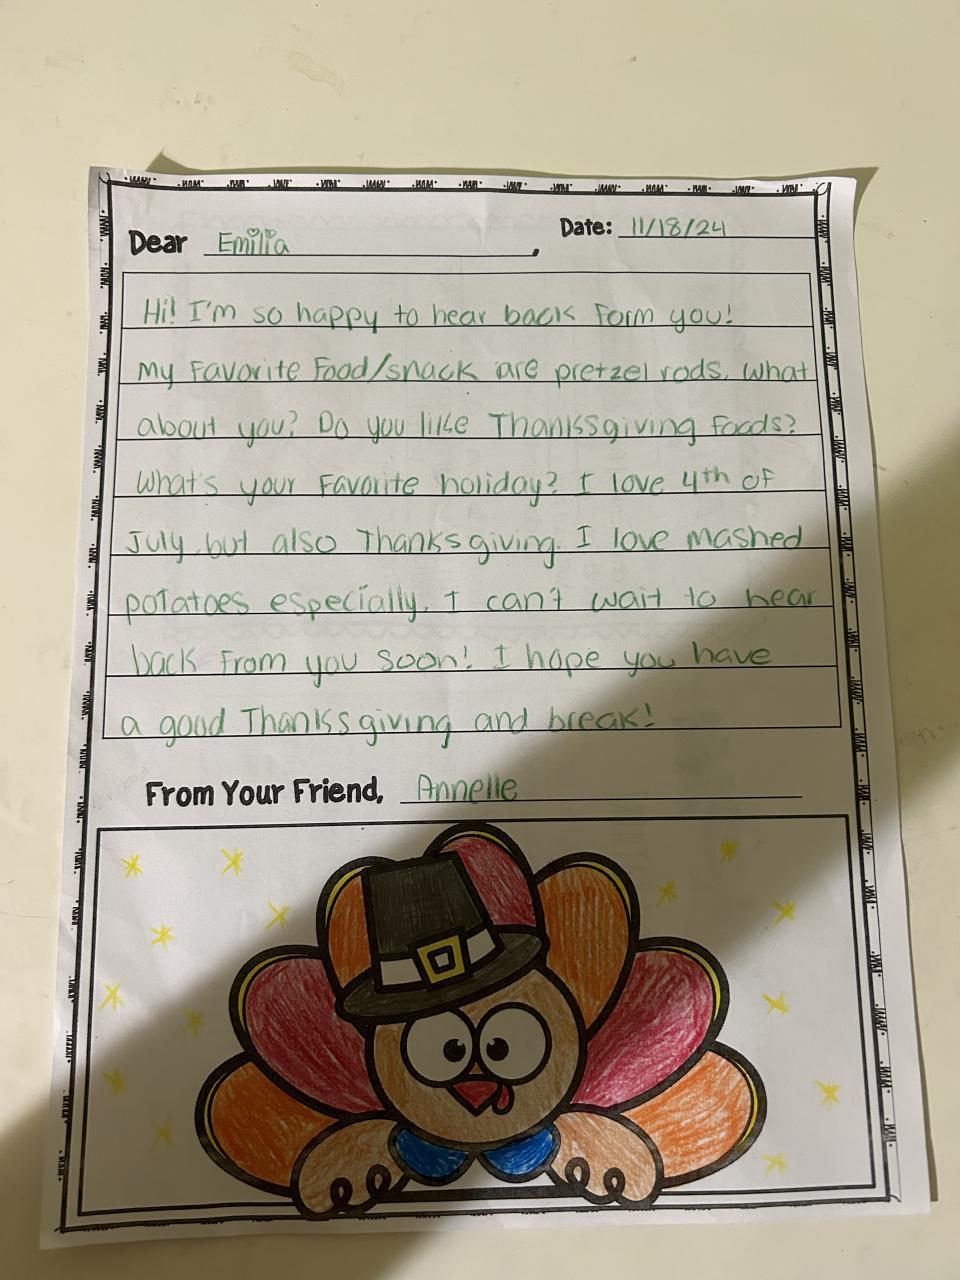 Dear Emilia,
Date: 11/18/24
Hi! I'm so happy to hear back form you!
My favorite food/snack are pretzel rods. What
about you? Do you like Thanksgiving foods?
What's your favorite holiday? I love 4th of
July but also Thanksgiving. I love mashed
potatoes especially. I can't wait to hear
back from you soon! I hope you have
a good Thanksgiving and break!
From Your Friend, Annelle